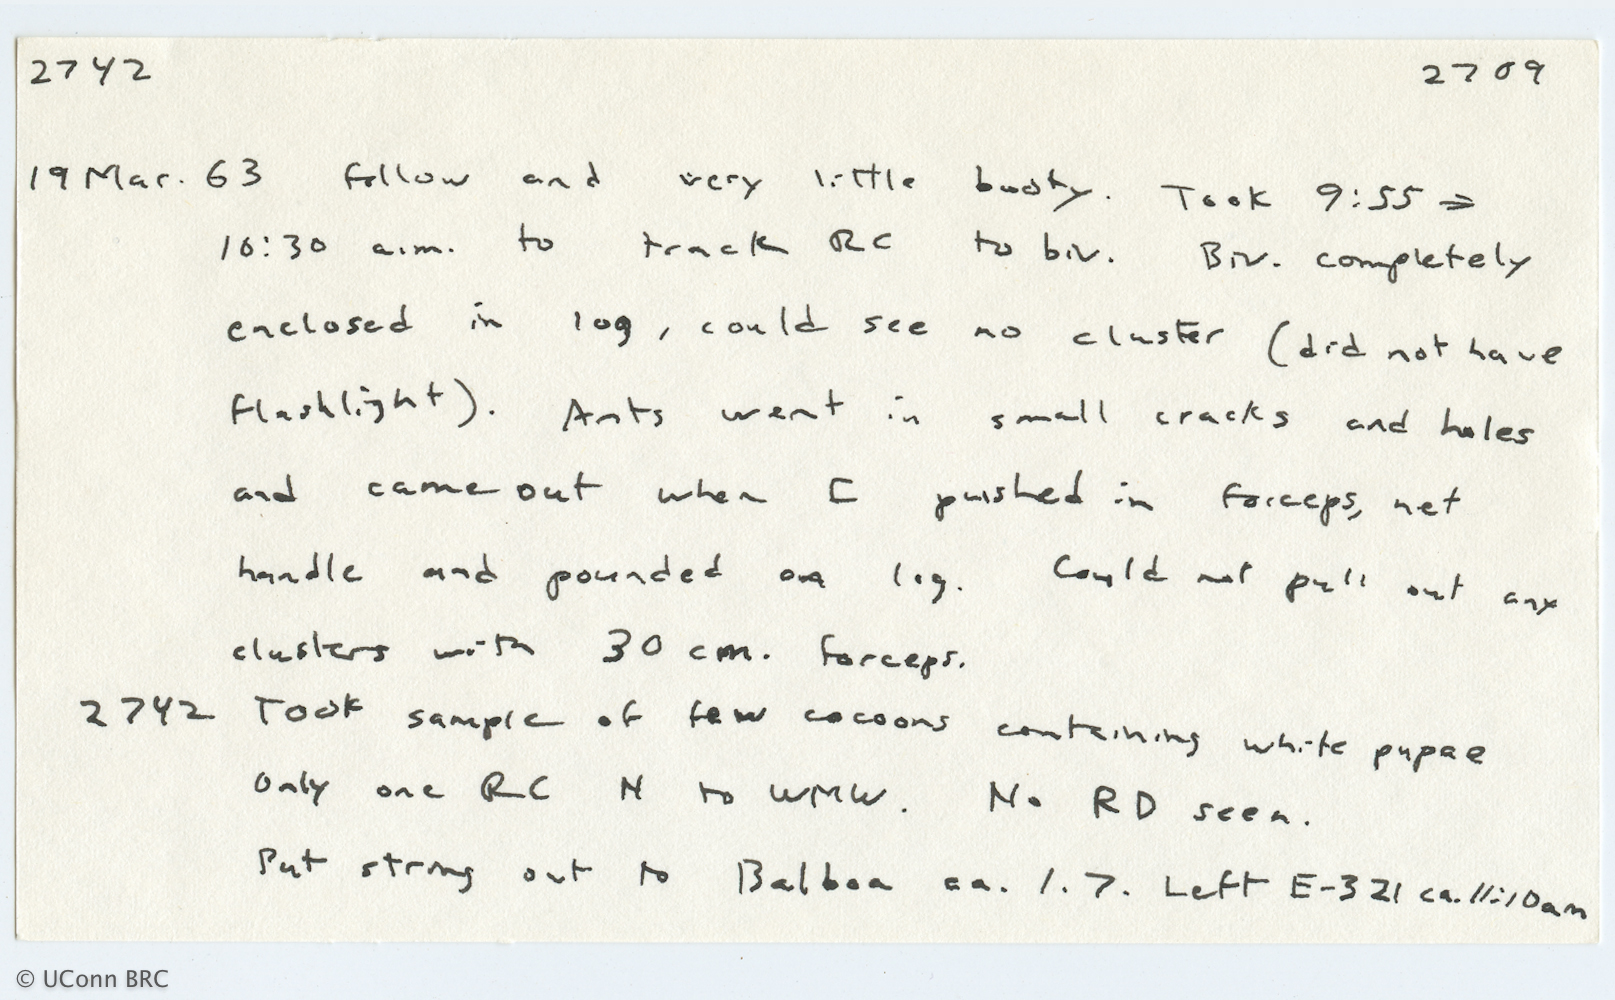 2742 2709
19 Mar. 63 follow and very little booty. Took 9:55 ⇒
10:30 a.m. to track RC to biv. Biv. completely
enclosed in log, could see no cluster (did not have
flashlight). Ants went in small cracks and holes
and came out when I pushed in forceps, net
handle and pounded on log. Could not pull out any
clusters with 30 cm. forceps.
2742 Took sample of few cocoons containing white pupae
Only one RC N to WMW. No RD seen.
Put string out to Balboa ca. 1.7. Left E-321 ca. 11:10am
© UConn BRC